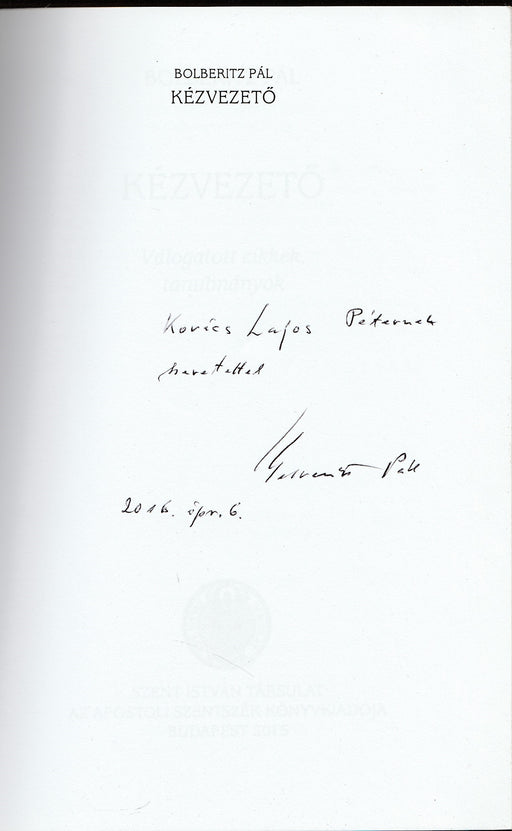 BOLBERITZ PÁL
KÉZVEZETŐ
BOLBERITZ PÁL
KÉZVEZETŐ
Válogatott cikkek,
tanulmányok
Kovács Lajos Péternek
szeretettel
Pál
2016. ápr. 6.
SZENT ISTVÁN TÁRSULAT
AZ APOSTOLI SZENTSZÉK KÖNYVKIADÓJA
BUDAPEST 2015